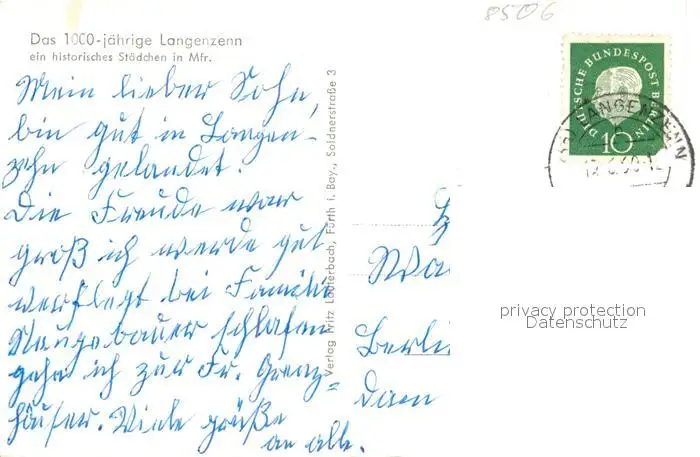 8506
Das 1000-jährige Langenzenn
ein historisches Städchen in Mfr.
Mein lieber Sohn,
bin gut in Langen-
zehn gelandet.
Die Freude war
groß ich werde gut
verflegt bei Familie
schlafen
gehe ich zur Fr. Grenz=
häußer. Viele grüße
an alle.
Verlag Fritz Lauterbach, Fürth i. Bay., Soldnerstraße 3
DEUTSCHE BUNDESPOST BERLIN
10
LANGENZENN
Berli
Dan
privacy protection
Datenschutz